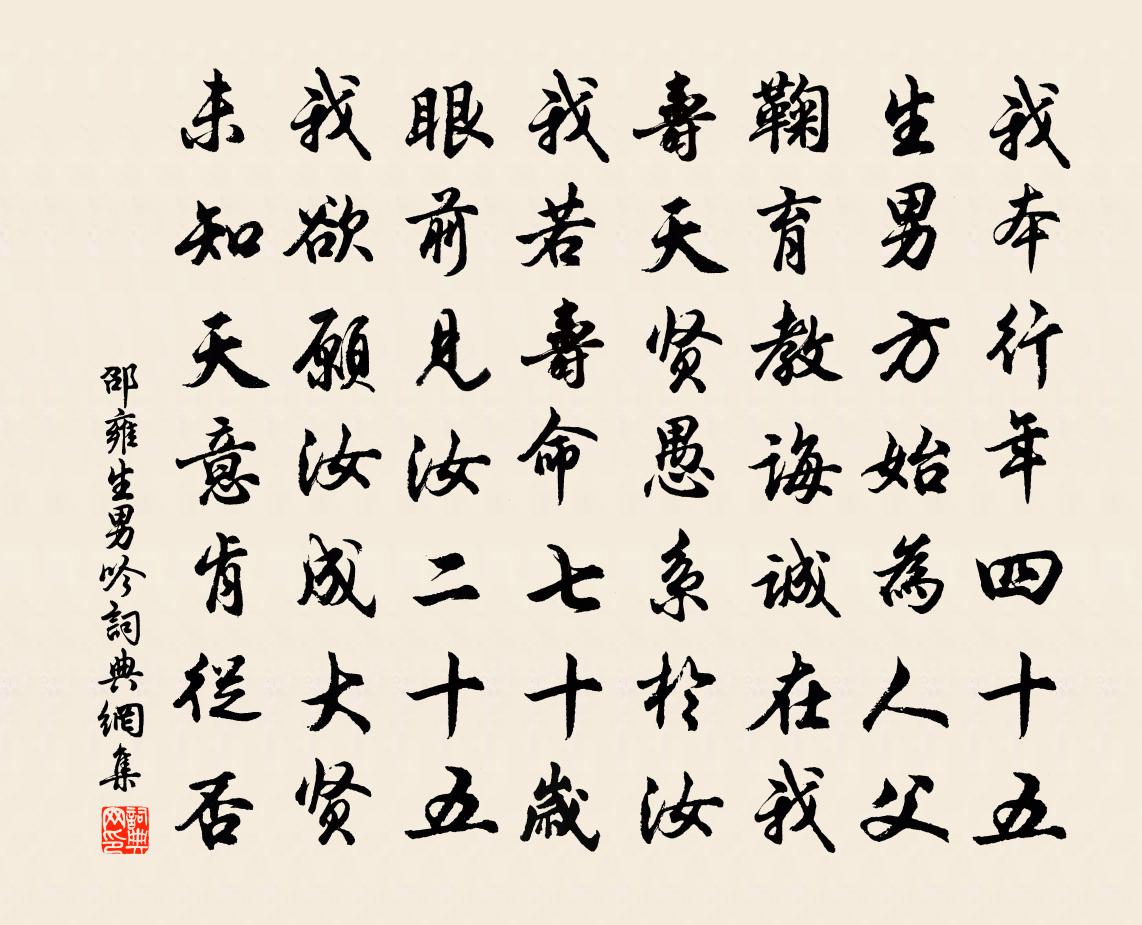 我本行年四十五
生男方始為人父
鞠育教誨誠在我
壽天贤愚系於汝
我若壽命七十歲
眼前見汝二十五
我欲願汝成大贤
未知天意肯從否
邵雍生男吟詞典網集
詞典網印